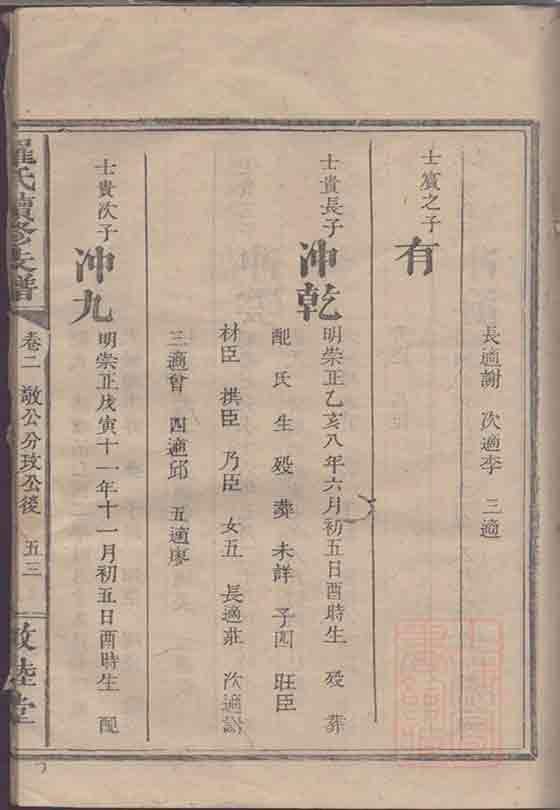 長適謝 次適李 三適
士賔之子 有
士貴長子 沖乾 明崇正乙亥八年六月初五日酉時生 殁 葬
配 氏 生 殁 葬 未詳 子四 旺臣
材臣 拱臣 乃臣 女五 長適莊 次適
三適曾 四適邱 五適廖
士貴次子 沖九 明崇正戊寅十一年十一月初五日酉時生 配
羅氏續修支譜 卷二 敬公分玫公後 五三 敦睦堂